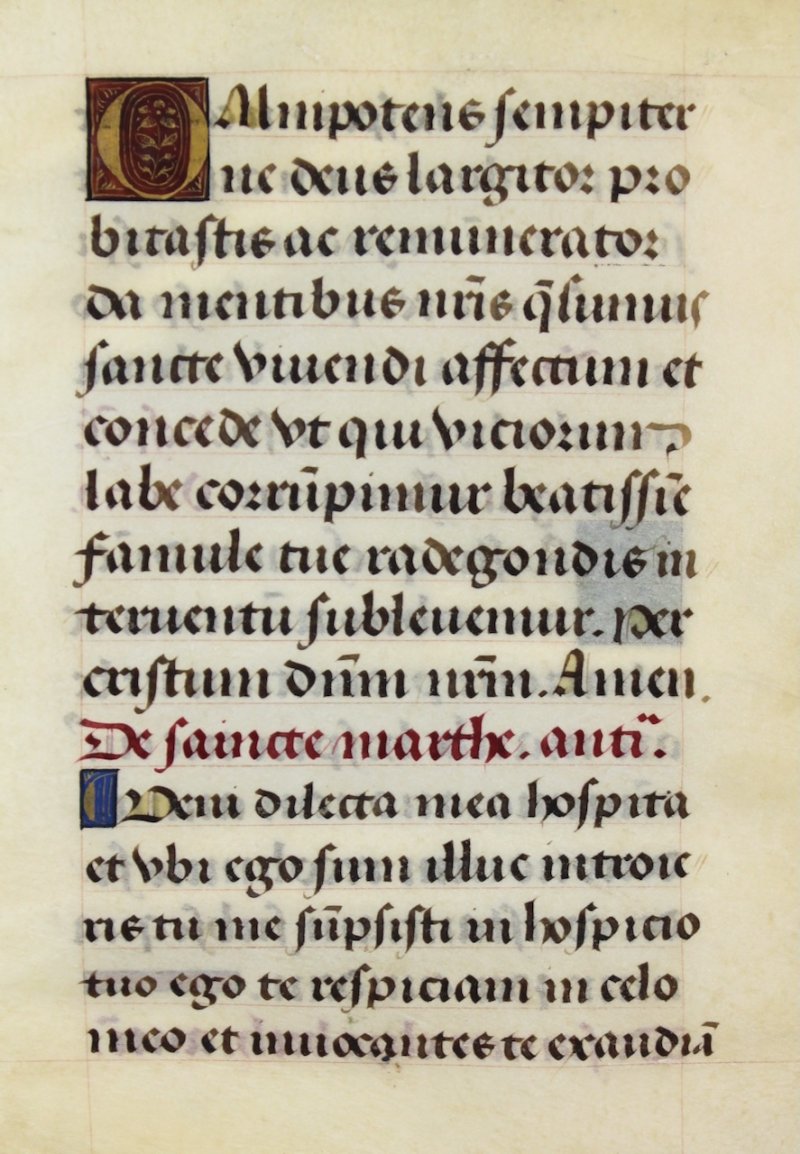 OMnipotens sempiter
ne deus largitor pro
bitastis ac remunerator
da mentibus nr̃is q̃sumus
sancte viuendi affectum et
concede vt qui viciorum
labe corrũpimur beatissiẽ
famule tue radegondis in
teruentu subleuemur. Per
cristum dñm nr̃m. Amen.
De saincte marthe. anti.
Veni dilecta mea hospita
et vbi ego sum illuc introie
ris tu me sũpsisti in hospicio
tuo ego te respiciam in celo
meo et inuocantes te exaudiã